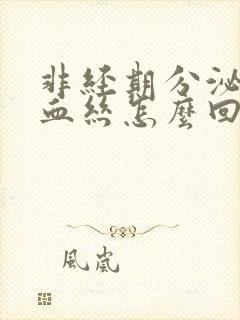 非經期分泌
血絲怎麼回
風嵐